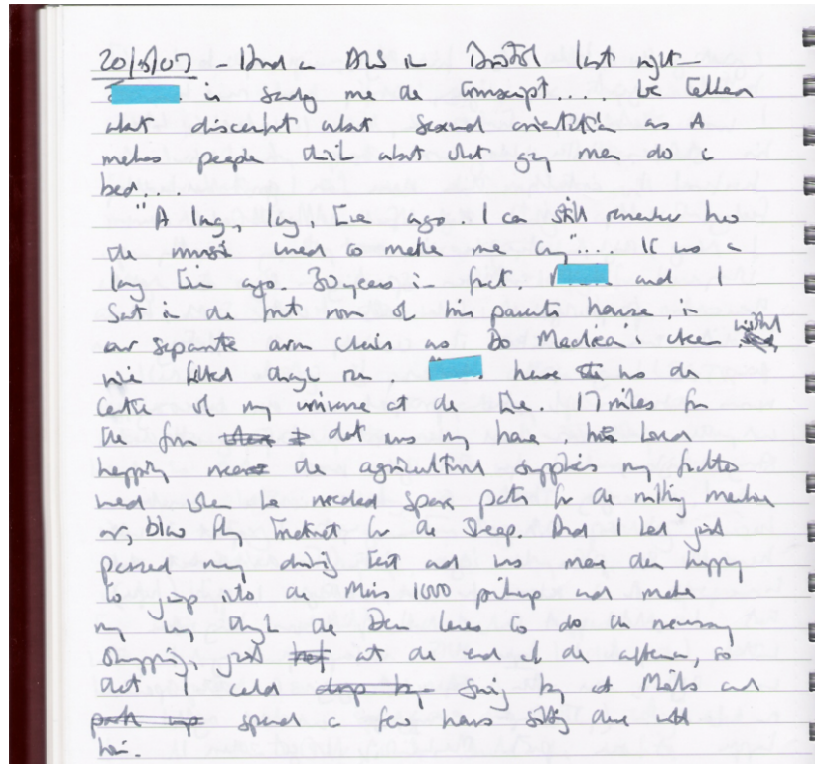 20/5/07 - Had a in Bristol last night -
is sending me the transcript.... he talked
about discomfort about sexual orientation as it
makes people think about what gay men do in
bed....
"A long, long, time ago. I can still remember how
the music used to make me cry".... It was a
long time ago. 30 years in fact. and I
sat in the front room of his parents house, in
our separate arm chairs as Don Maclean's clear, wistful
voice lilted through the room. house was the
centre of my universe at the time. 17 miles from
the farm that was my home, his
happily near the agricultural suppliers my father
used when he needed spare parts for the milking machine
or, blow fly treatment for the sheep. And I had just
passed my driving test and was more than happy
to jump into the Minor 1000 pickup and make
my way through the Devon lanes to do the necessary
shopping, just at the end of the afternoon, so
that I could swing by at and
spend a few hours sitting there with
him.